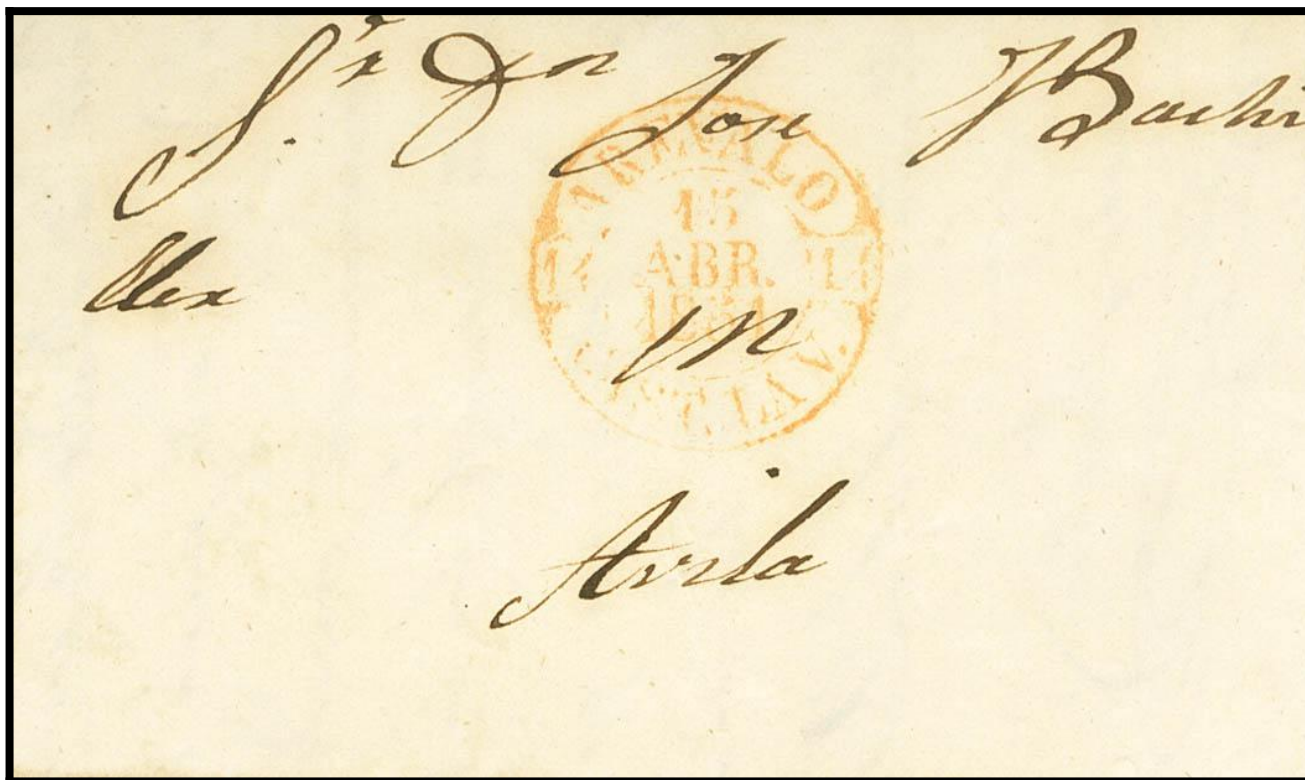 Sr. Dn Jose Bachi
ller
AREVALO
15
ABR.
1851
en
Avila